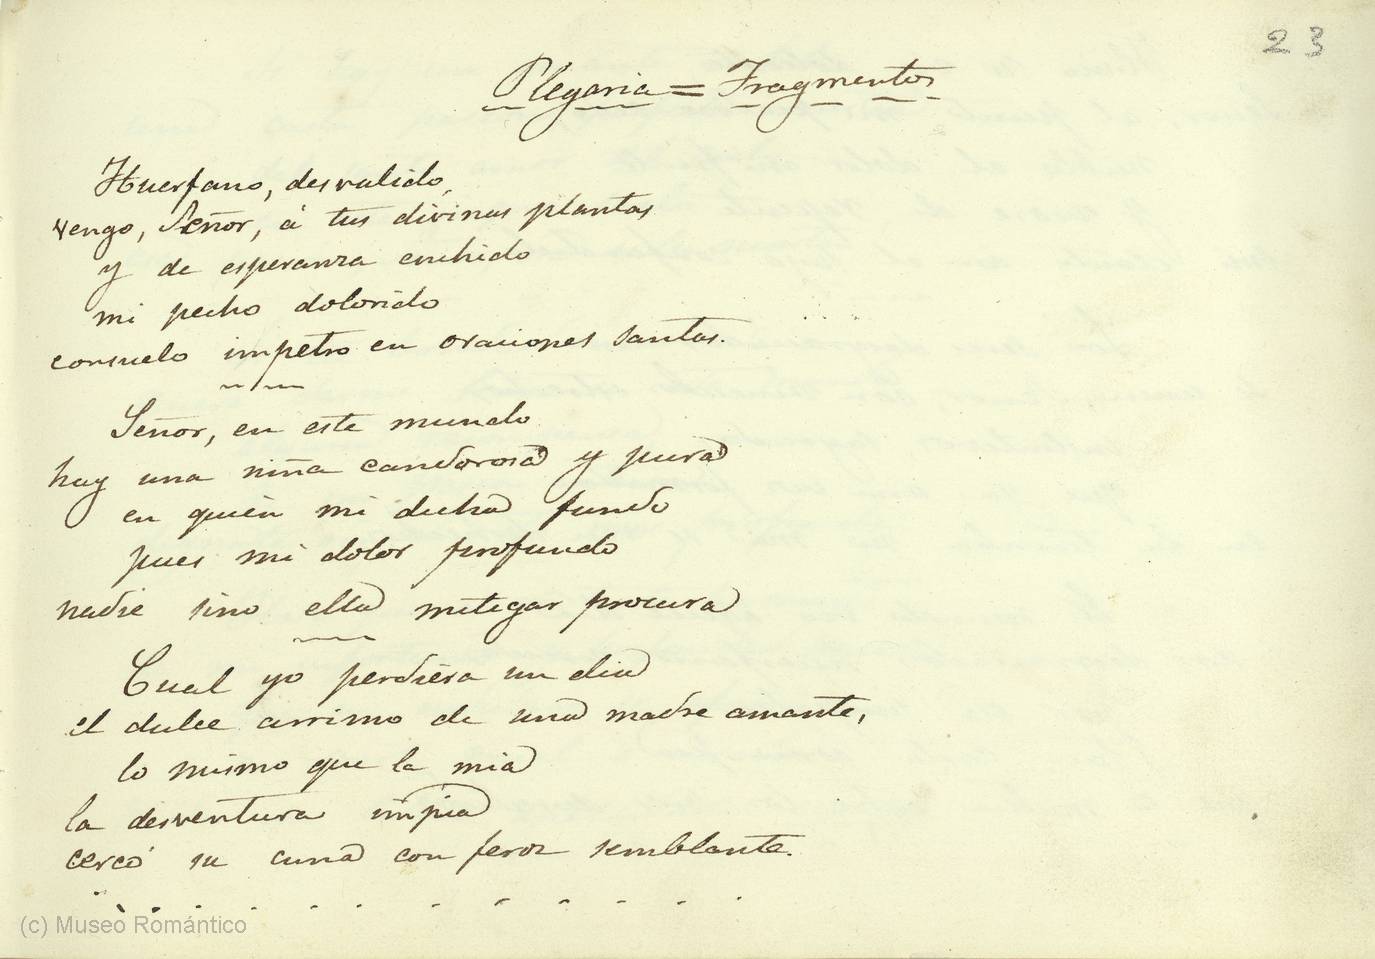 23
Plegaria = Fragmentos
Huerfano, desvalido,
vengo, Señor, á tus divinas plantas
y de esperanza enchido
mi pecho dolorido
consuelo impetro en oraciones santas.
Señor, en este mundo
hay una niña candorosa y pura
en quien mi dicha fundo
pues mi dolor profundo
nadie sino ella mitigar procura
Cual yo perdiera un dia
el dulce arrimo de una madre amante,
lo mismo que la mia
la desventura impia
cercó su cuna con feroz semblante.
(c) Museo Romántico